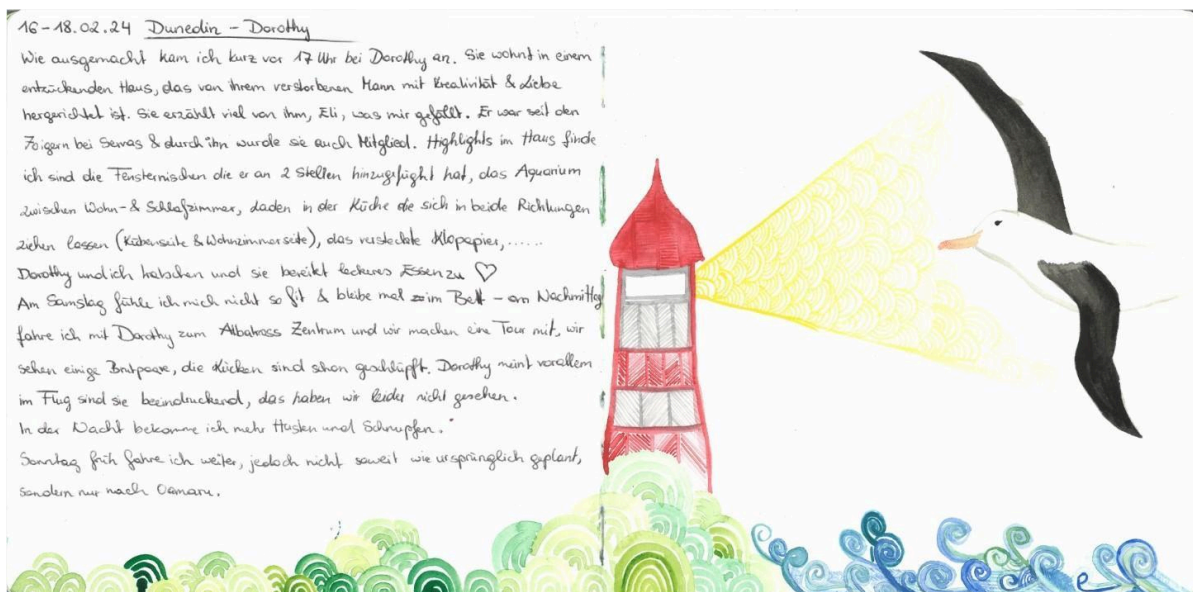 16-18.02.24 Dunedin - Dorothy
Wie ausgemacht kam ich kurz vor 17 Uhr bei Dorothy an. Sie wohnt in einem
entzückenden Haus, das von ihrem verstorbenen Mann mit Kreativität & Liebe
hergerichtet ist. Sie erzählt viel von ihm, Eli, was mir gefällt. Er war seit den
70igern bei Servas & durch ihn wurde sie auch Mitglied. Highlights im Haus finde
ich sind die Fensternischen die er an 2 Stellen hinzugefügt hat, das Aquarium
zwischen Wohn- & Schlafzimmer, Laden in der Küche die sich in beide Richtungen
ziehen lassen (Küchenseite & Wohnzimmerseite), das versteckte Klopapier,......
Dorothy und ich tratschen und sie bereitet leckeres Essen zu ♡
Am Samstag fühle ich mich nicht so fit & bleibe mal im Bett - am Nachmittag
fahre ich mit Dorothy zum Albatross Zentrum und wir machen eine Tour mit, wir
sehen einige Brutpaare, die Kücken sind schon geschlüpft. Dorothy meint vorallem
im Flug sind sie beeindruckend, das haben wir leider nicht gesehen.
In der Nacht bekomme ich mehr Husten und Schnupfen.
Sonntag früh fahre ich weiter, jedoch nicht soweit wie ursprünglich geplant,
sondern nur nach Oamaru.